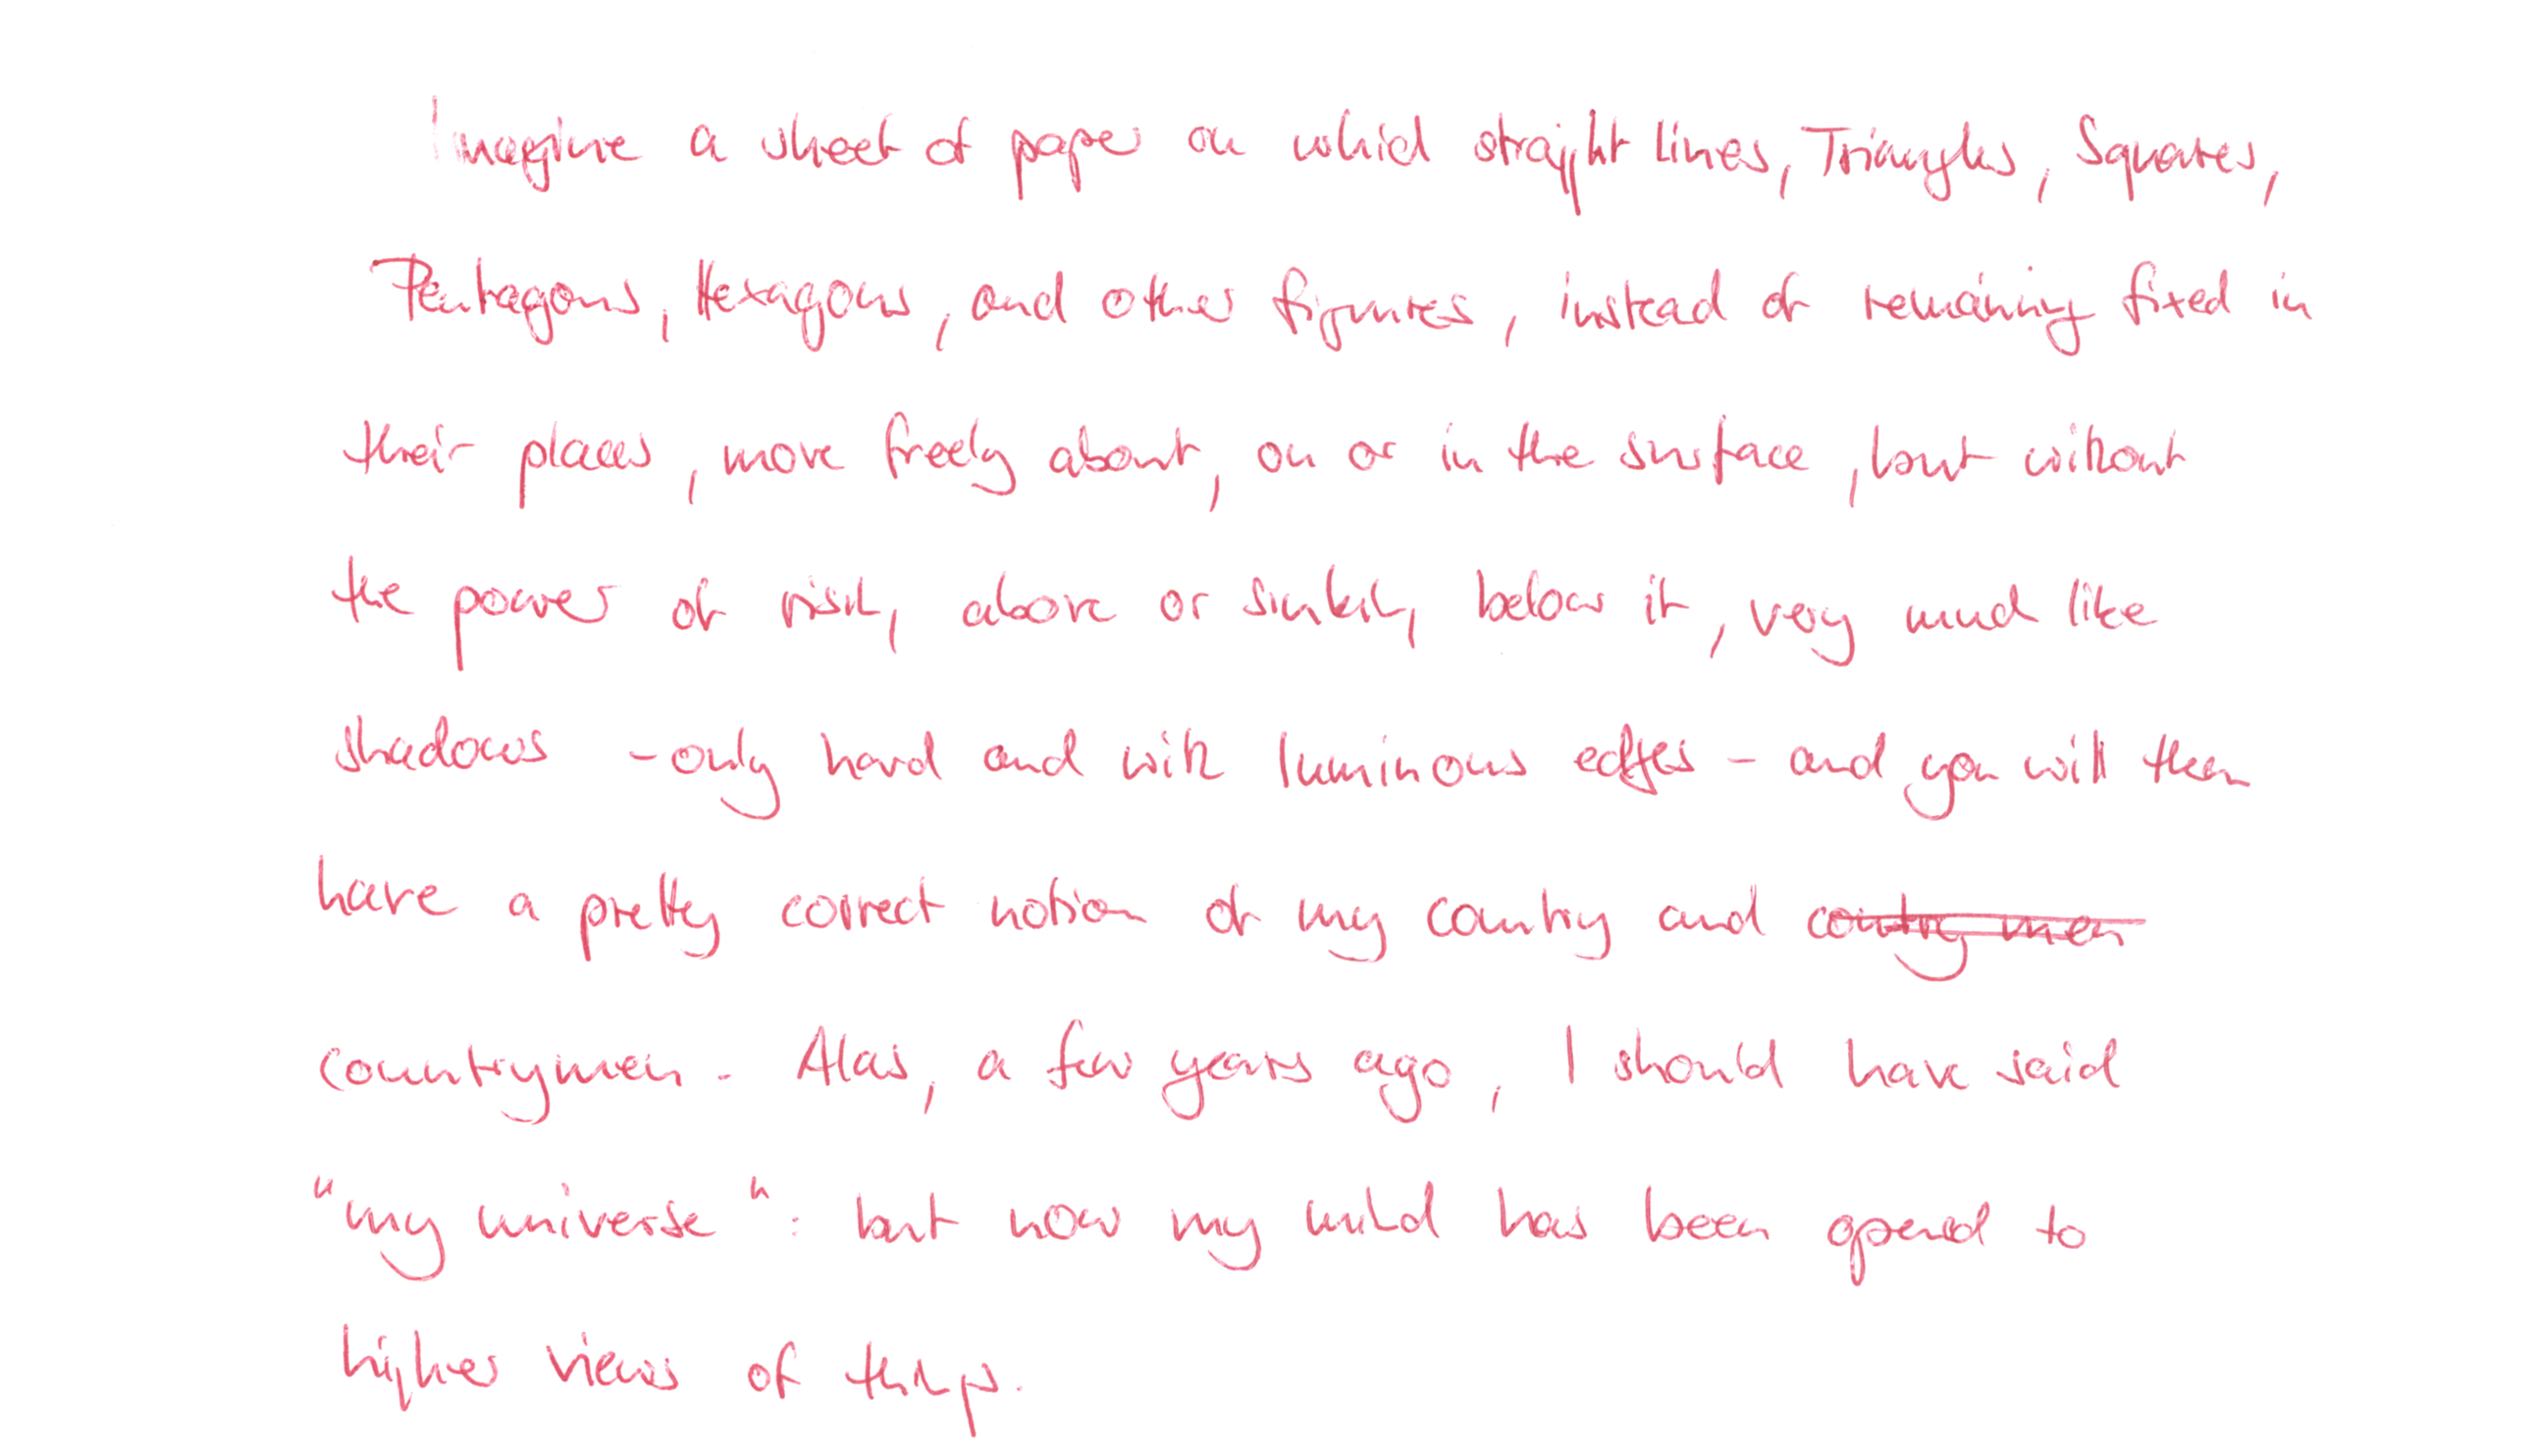 Imagine a sheet of paper on which straight lines, Triangles, Squares,
Pentagons, Hexagons, and other figures, instead of remaining fixed in
their places, move freely about, on or in the surface, but without
the power of rising above or sinking below it, very much like
shadows - only hard and with luminous edges - and you will then
have a pretty correct notion of my country and contry men
countrymen. Alas, a few years ago, I should have said
"my universe": but now my mind has been opened to
higher views of things.